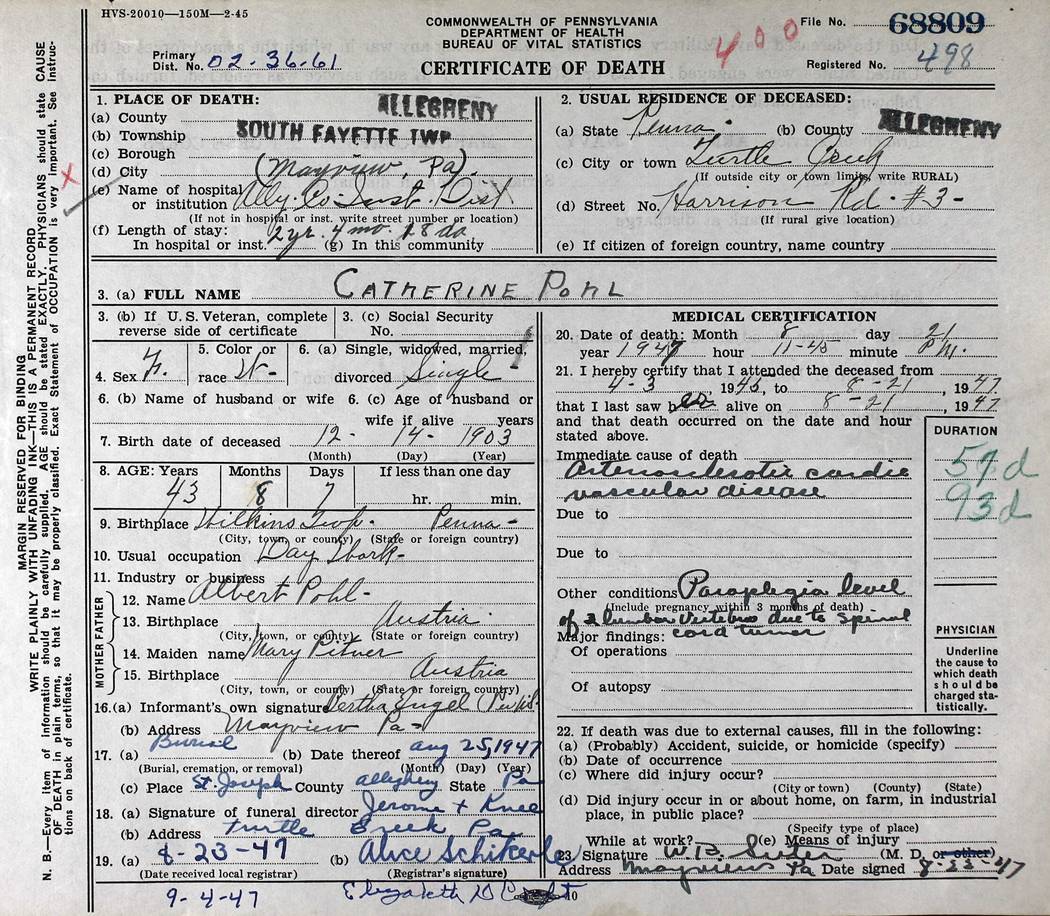 HVS-20010—150M—2-45
COMMONWEALTH OF PENNSYLVANIA
DEPARTMENT OF HEALTH
BUREAU OF VITAL STATISTICS
CERTIFICATE OF DEATH
Primary Dist. No. 02-36-61
400
File No. 68809
Registered No. 498
MARGIN RESERVED FOR BINDING
WRITE PLAINLY WITH UNFADING INK—THIS IS A PERMANENT RECORD
N. B.—Every item of information should be carefully supplied. AGE should be stated EXACTLY. PHYSICIANS should state CAUSE
OF DEATH in plain terms, so that it may be properly classified. Exact Statement of OCCUPATION is very important. See instruc-
tions on back of certificate.
1. PLACE OF DEATH:
(a) County ALLEGHENY
(b) Township SOUTH FAYETTE TWP
(c) Borough
(d) City (Mayview, Pa).
(e) Name of hospital or institution Alleg. Co. Inst. Dist
(If not in hospital or inst. write street number or location)
(f) Length of stay:
In hospital or inst. 2yr. 4mo. 18da (g) In this community
2. USUAL RESIDENCE OF DECEASED:
(a) State Penna. (b) County ALLEGHENY
(c) City or town Turtle Creek
(If outside city or town limits, write RURAL)
(d) Street No. Harrison Rd. #3-
(If rural give location)
(e) If citizen of foreign country, name country
3. (a) FULL NAME CATHERINE POHL
3. (b) If U.S. Veteran, complete reverse side of certificate
3. (c) Social Security No.
4. Sex F.
5. Color or race W-
6. (a) Single, widowed, married, divorced Single
6. (b) Name of husband or wife
6. (c) Age of husband or wife if alive years
7. Birth date of deceased 12- 14- 1903
(Month) (Day) (Year)
8. AGE: Years Months Days If less than one day
43 8 7 hr. min.
9. Birthplace Wilkins Twp- Penna-
(City, town, or county) (State or foreign country)
10. Usual occupation Day Work-
11. Industry or business
FATHER
12. Name Albert Pohl-
13. Birthplace Austria
(City, town, or county) (State or foreign country)
MOTHER
14. Maiden name Mary Pitner
15. Birthplace Austria
(City, town, or county) (State or foreign country)
16. (a) Informant's own signature Bertha Engel
(b) Address Mayview Pa-
17. (a) Burial (b) Date thereof Aug 25, 1947
(Burial, cremation, or removal) (Month) (Day) (Year)
(c) Place St. Joseph County Allegheny State Pa
18. (a) Signature of funeral director Jerome +
(b) Address Turtle Creek Pa.
19. (a) 8-23-47 (b) Alice
(Date received local registrar) (Registrar's signature)
9-4-47 Elizabeth D
MEDICAL CERTIFICATION
20. Date of death: Month 8 day 21
year 1947 hour 11-45 minute P.M.
21. I hereby certify that I attended the deceased from
4-3 1945, to 8-21 1947
that I last saw her alive on 8-21, 1947
and that death occurred on the date and hour
stated above.
DURATION
Immediate cause of death
Arteriosclerotic cardio
vascular disease
57d
93d
Due to
Due to
Other conditions Paraplegia level
(Include pregnancy within 3 months of death)
of 2 lumbar vertebra due to spinal
Major findings: cord tumor
Of operations
Of autopsy
PHYSICIAN
Underline
the cause to
which death
should be
charged sta-
tistically.
22. If death was due to external causes, fill in the following:
(a) (Probably) Accident, suicide, or homicide (specify)
(b) Date of occurrence
(c) Where did injury occur?
(City or town) (County) (State)
(d) Did injury occur in or about home, on farm, in industrial
place, in public place?
(Specify type of place)
While at work? (e) Means of injury
23. Signature W.B. (M. D. or other)
Address Mayview Pa Date signed 8-23-47